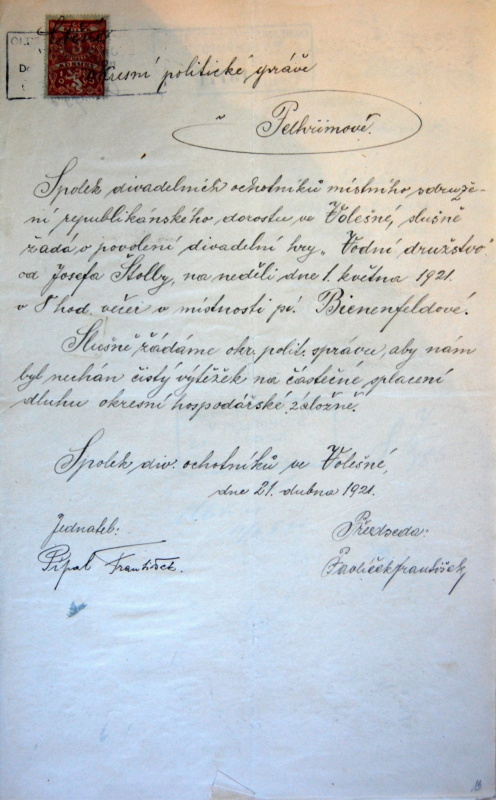 Slavné
okresní politické správě
v Pelhřimově.
Spolek divadelních ochotníků místního sdruže-
ní republikánského dorostu ve Volešné, slušně
žádá o povolení divadelní hry „Vodní družstvo"
od Josefa Štolby, na neděli dne 1. května 1921.
v 8 hod. večer v místnosti pí. Bienenfeldové.
Slušně žádáme okr. polit. správu, aby nám
byl nechán čistý výtěžek na částečné splacení
dluhu okresní hospodářské záložně.
Spolek div. ochotníků ve Volešné,
dne 21. dubna 1921.
Jednatel:
Předseda:
Pípal František.
Pavlíček František,